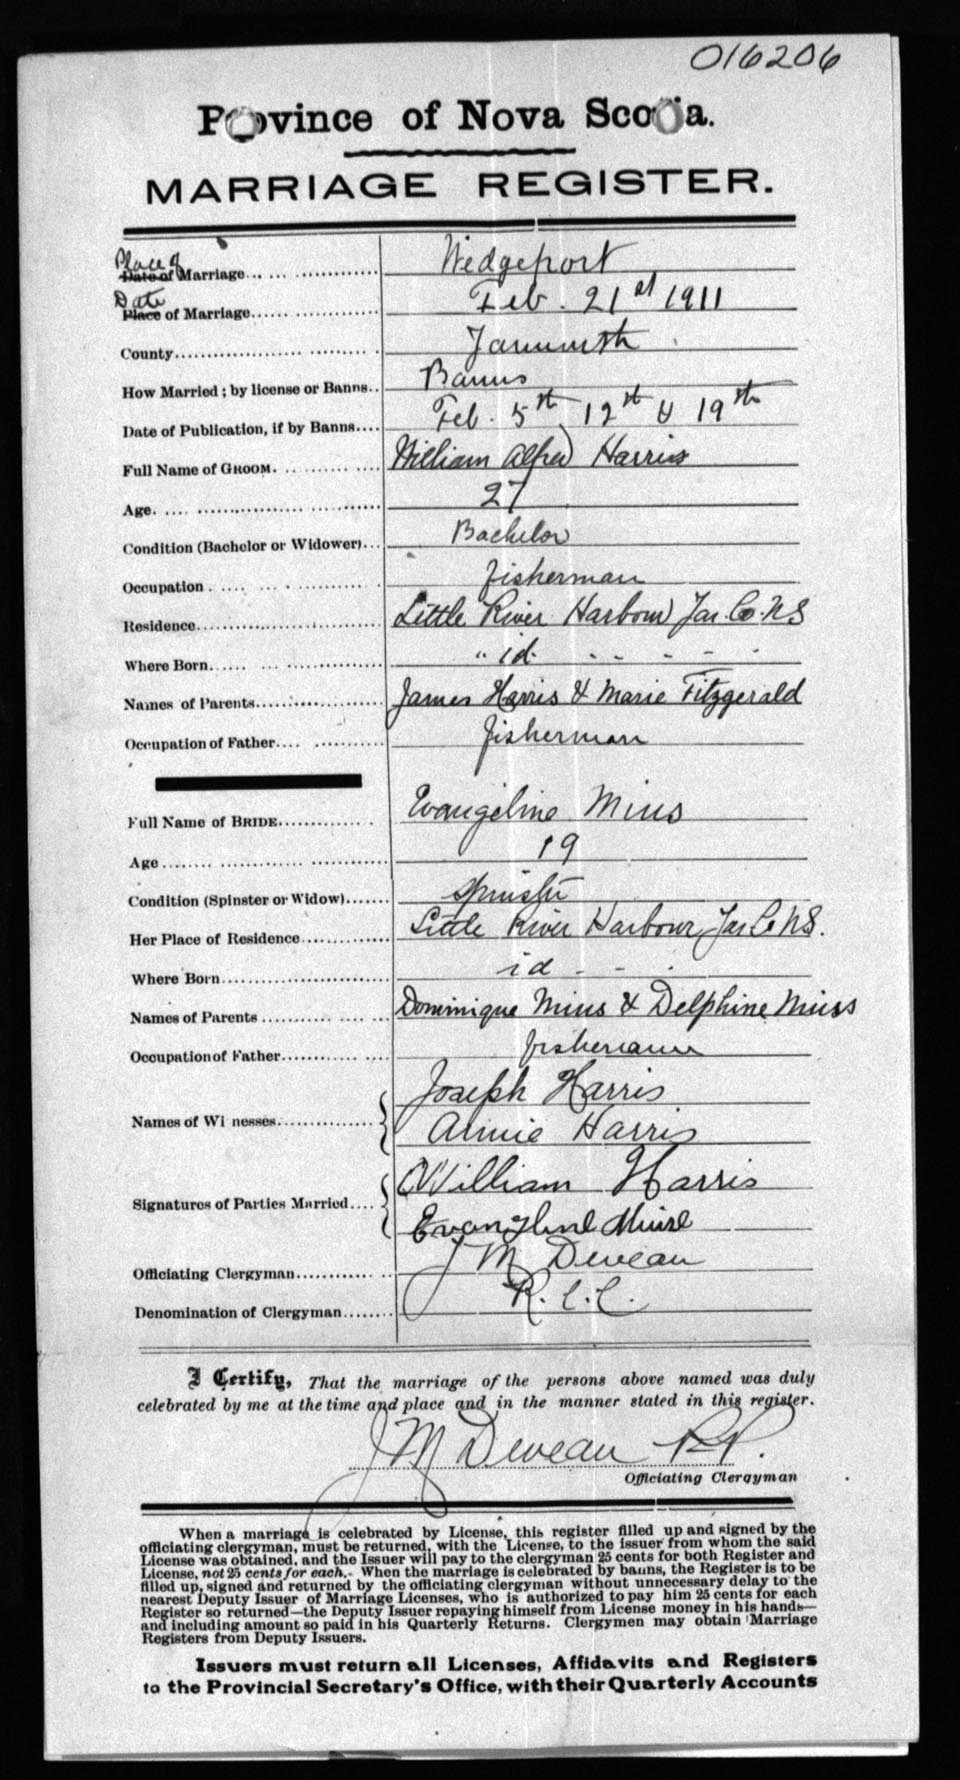 016206
Province of Nova Scotia.
MARRIAGE REGISTER.
Place of
Date of Marriage... Wedgeport
Date
Place of Marriage... Feb. 21st 1911
County... Yarmouth
How Married ; by license or Banns.. Banns
Date of Publication, if by Banns.... Feb. 5th, 12th & 19th
Full Name of GROOM. William Alfred Harris
Age. 27
Condition (Bachelor or Widower)... Bachelor
Occupation fisherman
Residence... Little River Harbour Yar. Co. N.S
Where Born... " id. - - - - -
Names of Parents... James Harris & Marie Fitzgerald
Occupation of Father.... fisherman
Full Name of BRIDE... Evangeline Mius
Age... 19
Condition (Spinster or Widow)....... Spinster
Her Place of Residence... Little River Harbour Yar Co N.S.
Where Born... id - - .
Names of Parents... Dominique Mius & Delphine Miuss
Occupation of Father... fisherman
Names of Wi nesses... Joseph Harris
Annie Harris
Signatures of Parties Married.... William Harris
Evangline Muise
Officiating Clergyman... J M Deveau
Denomination of Clergyman....... R. C. C.
I Certify, That the marriage of the persons above named was duly
celebrated by me at the time and place and in the manner stated in this register.
J M Deveau P.P.
Officiating Clergyman
When a marriage is celebrated by License, this register filled up and signed by the
officiating clergyman, must be returned, with the License, to the issuer from whom the said
License was obtained, and the Issuer will pay to the clergyman 25 cents for both Register and
License, not 25 cents for each. When the marriage is celebrated by banns, the Register is to be
filled up, signed and returned by the officiating clergyman without unnecessary delay to the
nearest Deputy Issuer of Marriage Licenses, who is authorized to pay him 25 cents for each
Register so returned—the Deputy Issuer repaying himself from License money in his hands—
and including amount so paid in his Quarterly Returns. Clergymen may obtain Marriage
Registers from Deputy Issuers.
Issuers must return all Licenses, Affidavits and Registers
to the Provincial Secretary's Office, with their Quarterly Accounts